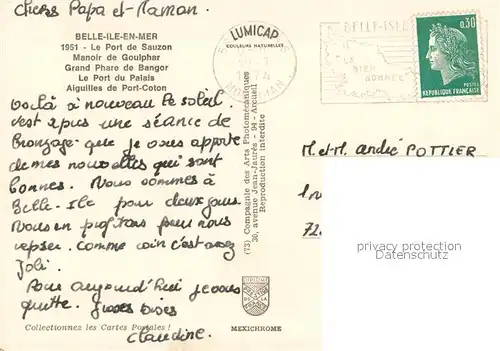 Chers Papa et Maman.
BELLE-ILE-EN-MER
1951 - Le Port de Sauzon
Manoir de Goulphar
Grand Phare de Bangor
Le Port du Palais
Aiguilles de Port-Coton
Voilà à nouveau le soleil.
c'est après une séance de
bronzage que je vous apporte
de mes nouvelles qui sont
bonnes. Nous sommes à
Belle-Ile pour deux jours.
Nous en profitons pour nous
reposer. Comme coin c'est assez
Joli.
Pour aujourd'hui je vous
quitte. Grosses bises
Claudine.
Collectionnez les Cartes Postales !
LUMICAP
COULEURS NATURELLES
(73) Compagnie des Arts Photomécaniques
30, avenue Jean-Jaurès - 94 - Arcueil
Reproduction interdite
MEXICHROME
MORBIHAN
BELLE-ISLE
LA
BIEN
NOMMÉE
0,30
POSTES
REPUBLIQUE FRANÇAISE
M. et M. andré POTTIER
72
privacy protection
datenschutz